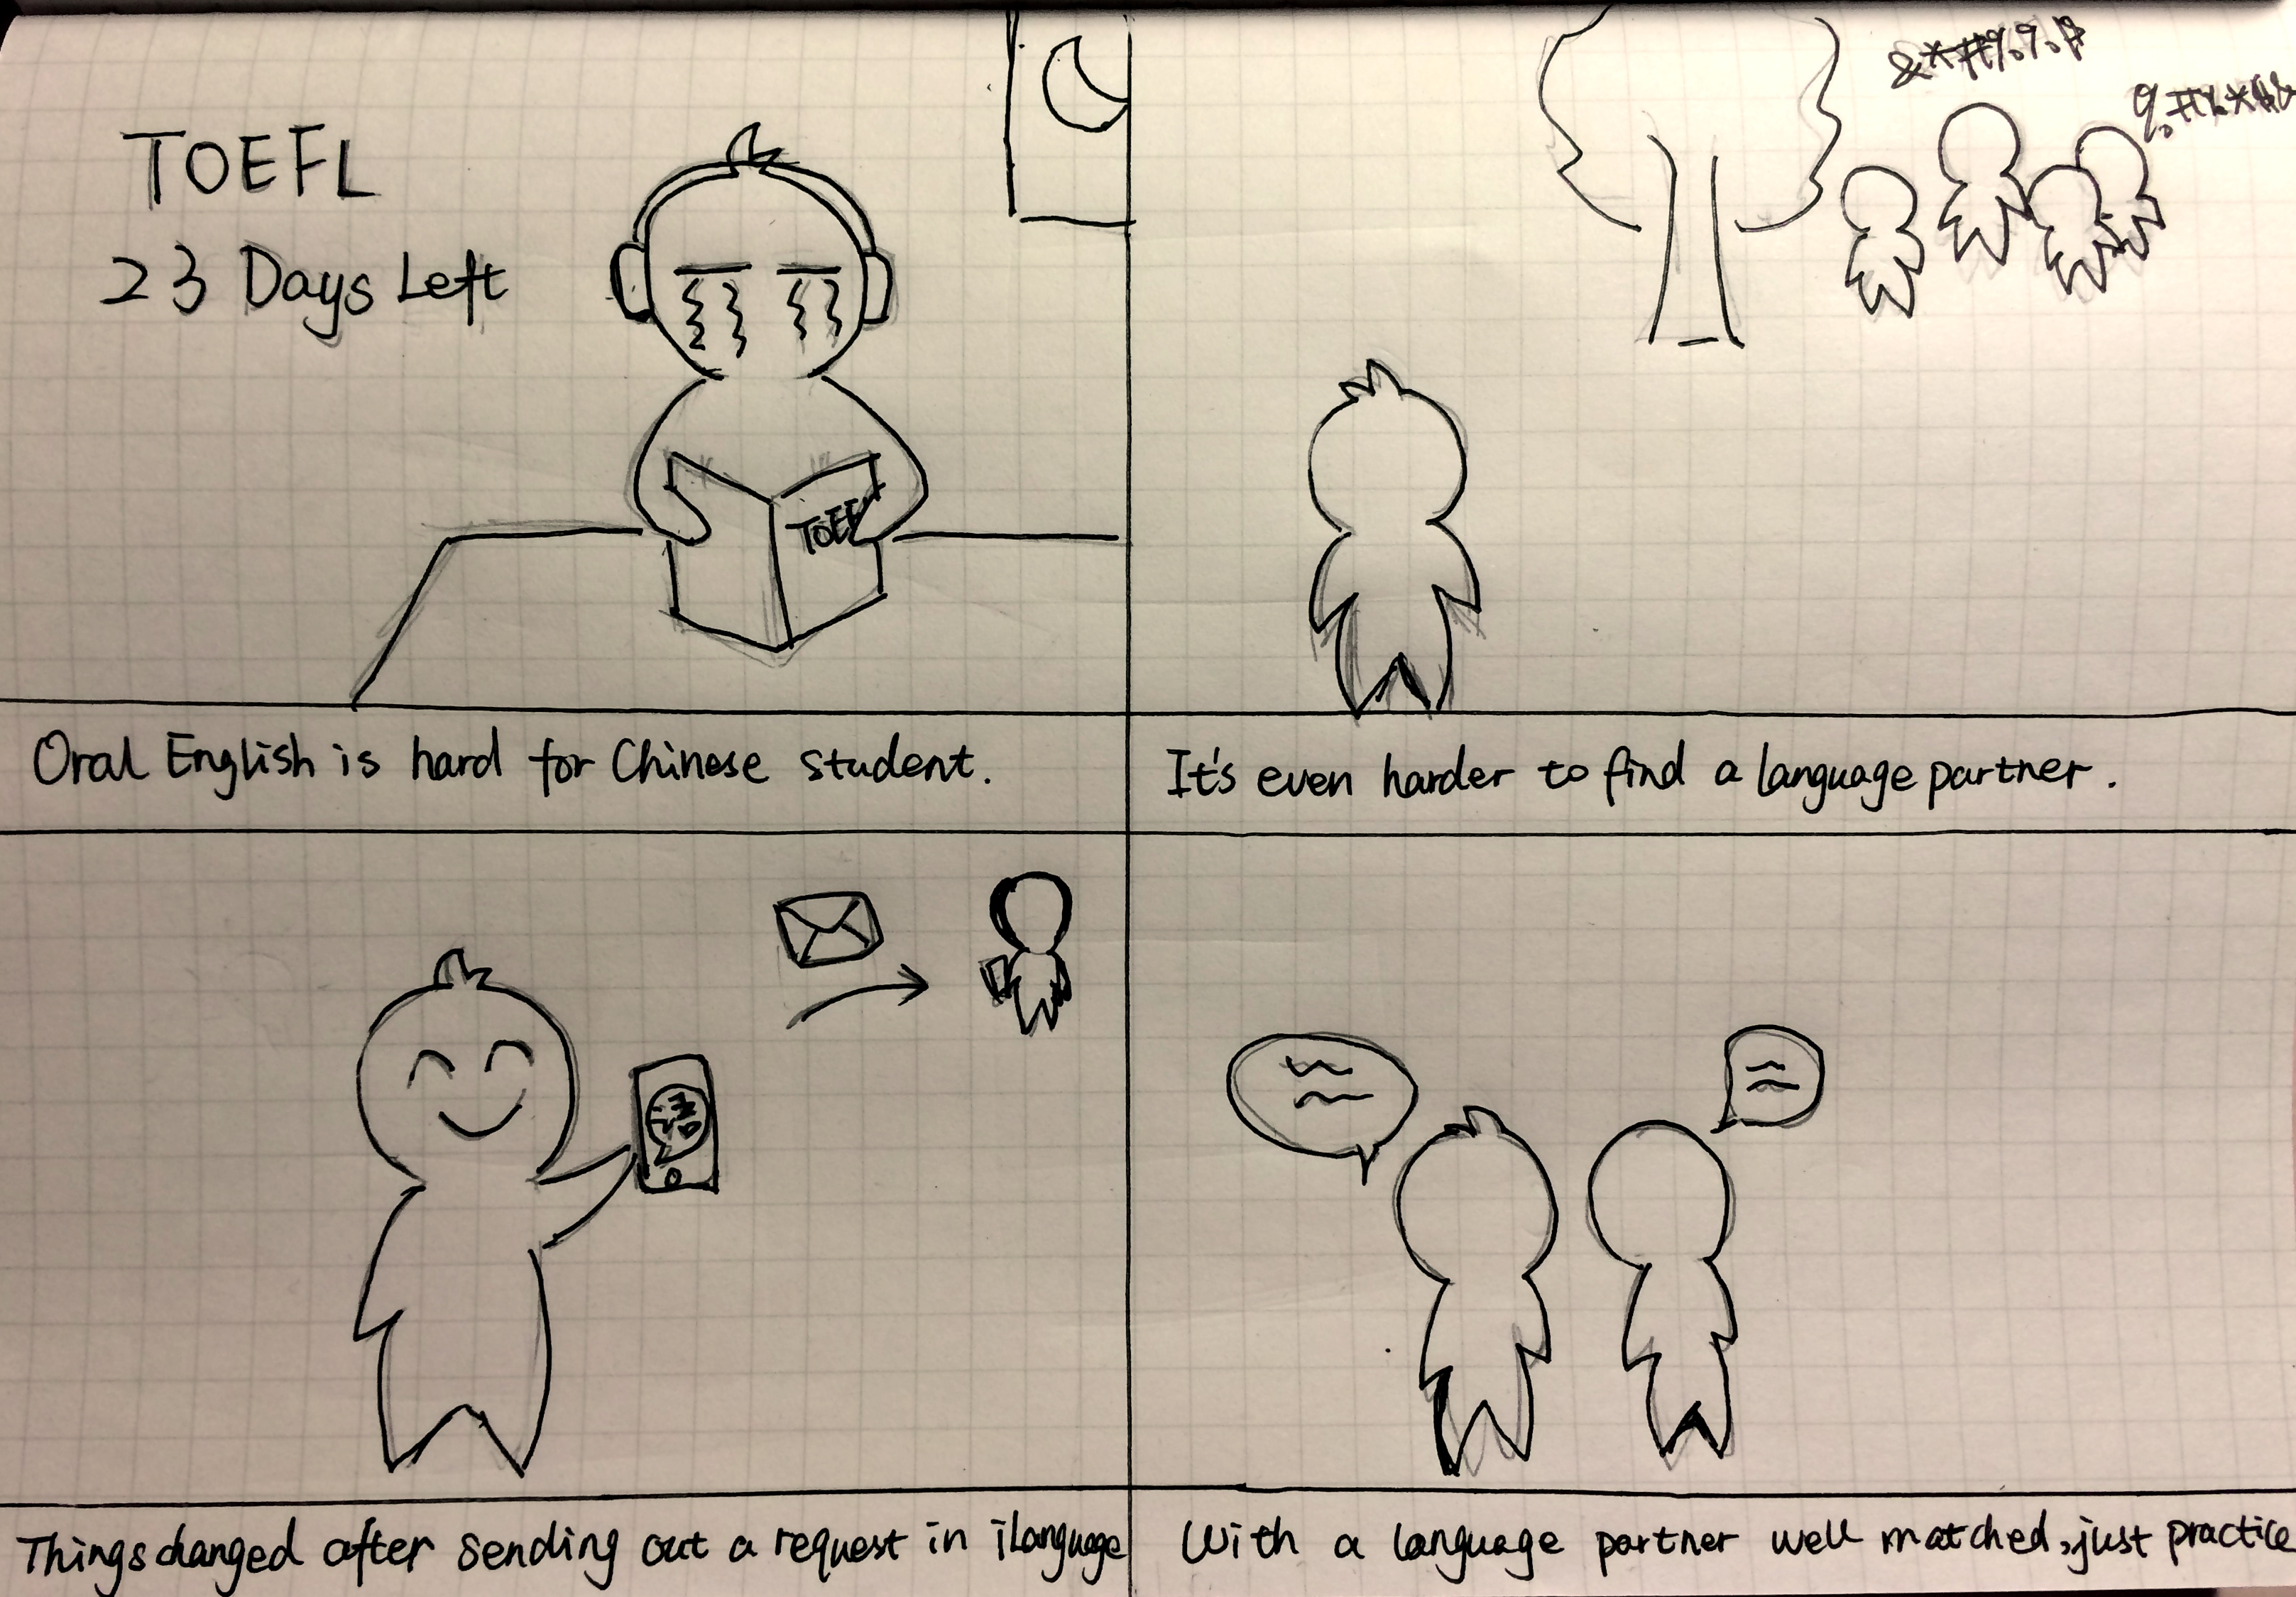 TOEFL
23 Days Left
TOEF
&*#%%#
Oral English is hard for Chinese student.
It's even harder to find a language partner.
语
Things changed after sending out a request in iLanguage
With a language partner well matched, just practice